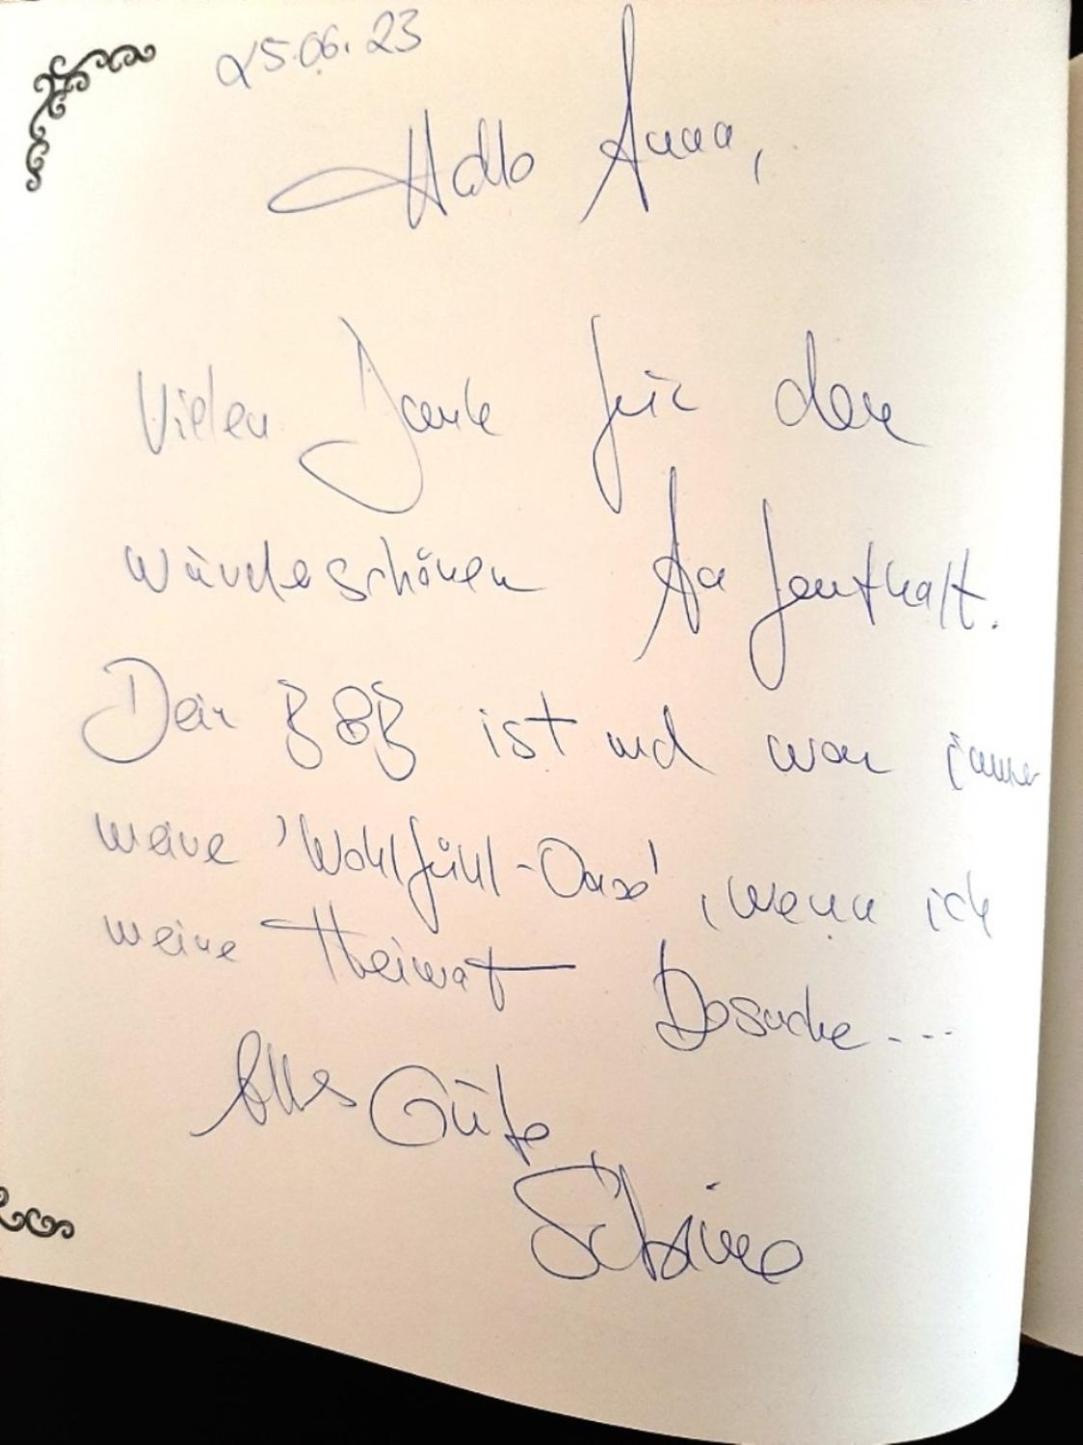 25.06.23
Hallo Anna,
Vielen Dank für den
wunderschönen Aufenthalt.
Dein B&B ist und war immer
meine 'Wohlfühl-Oase', wenn ich
meine Heimat besuche....
Alles Gute,
Sabine